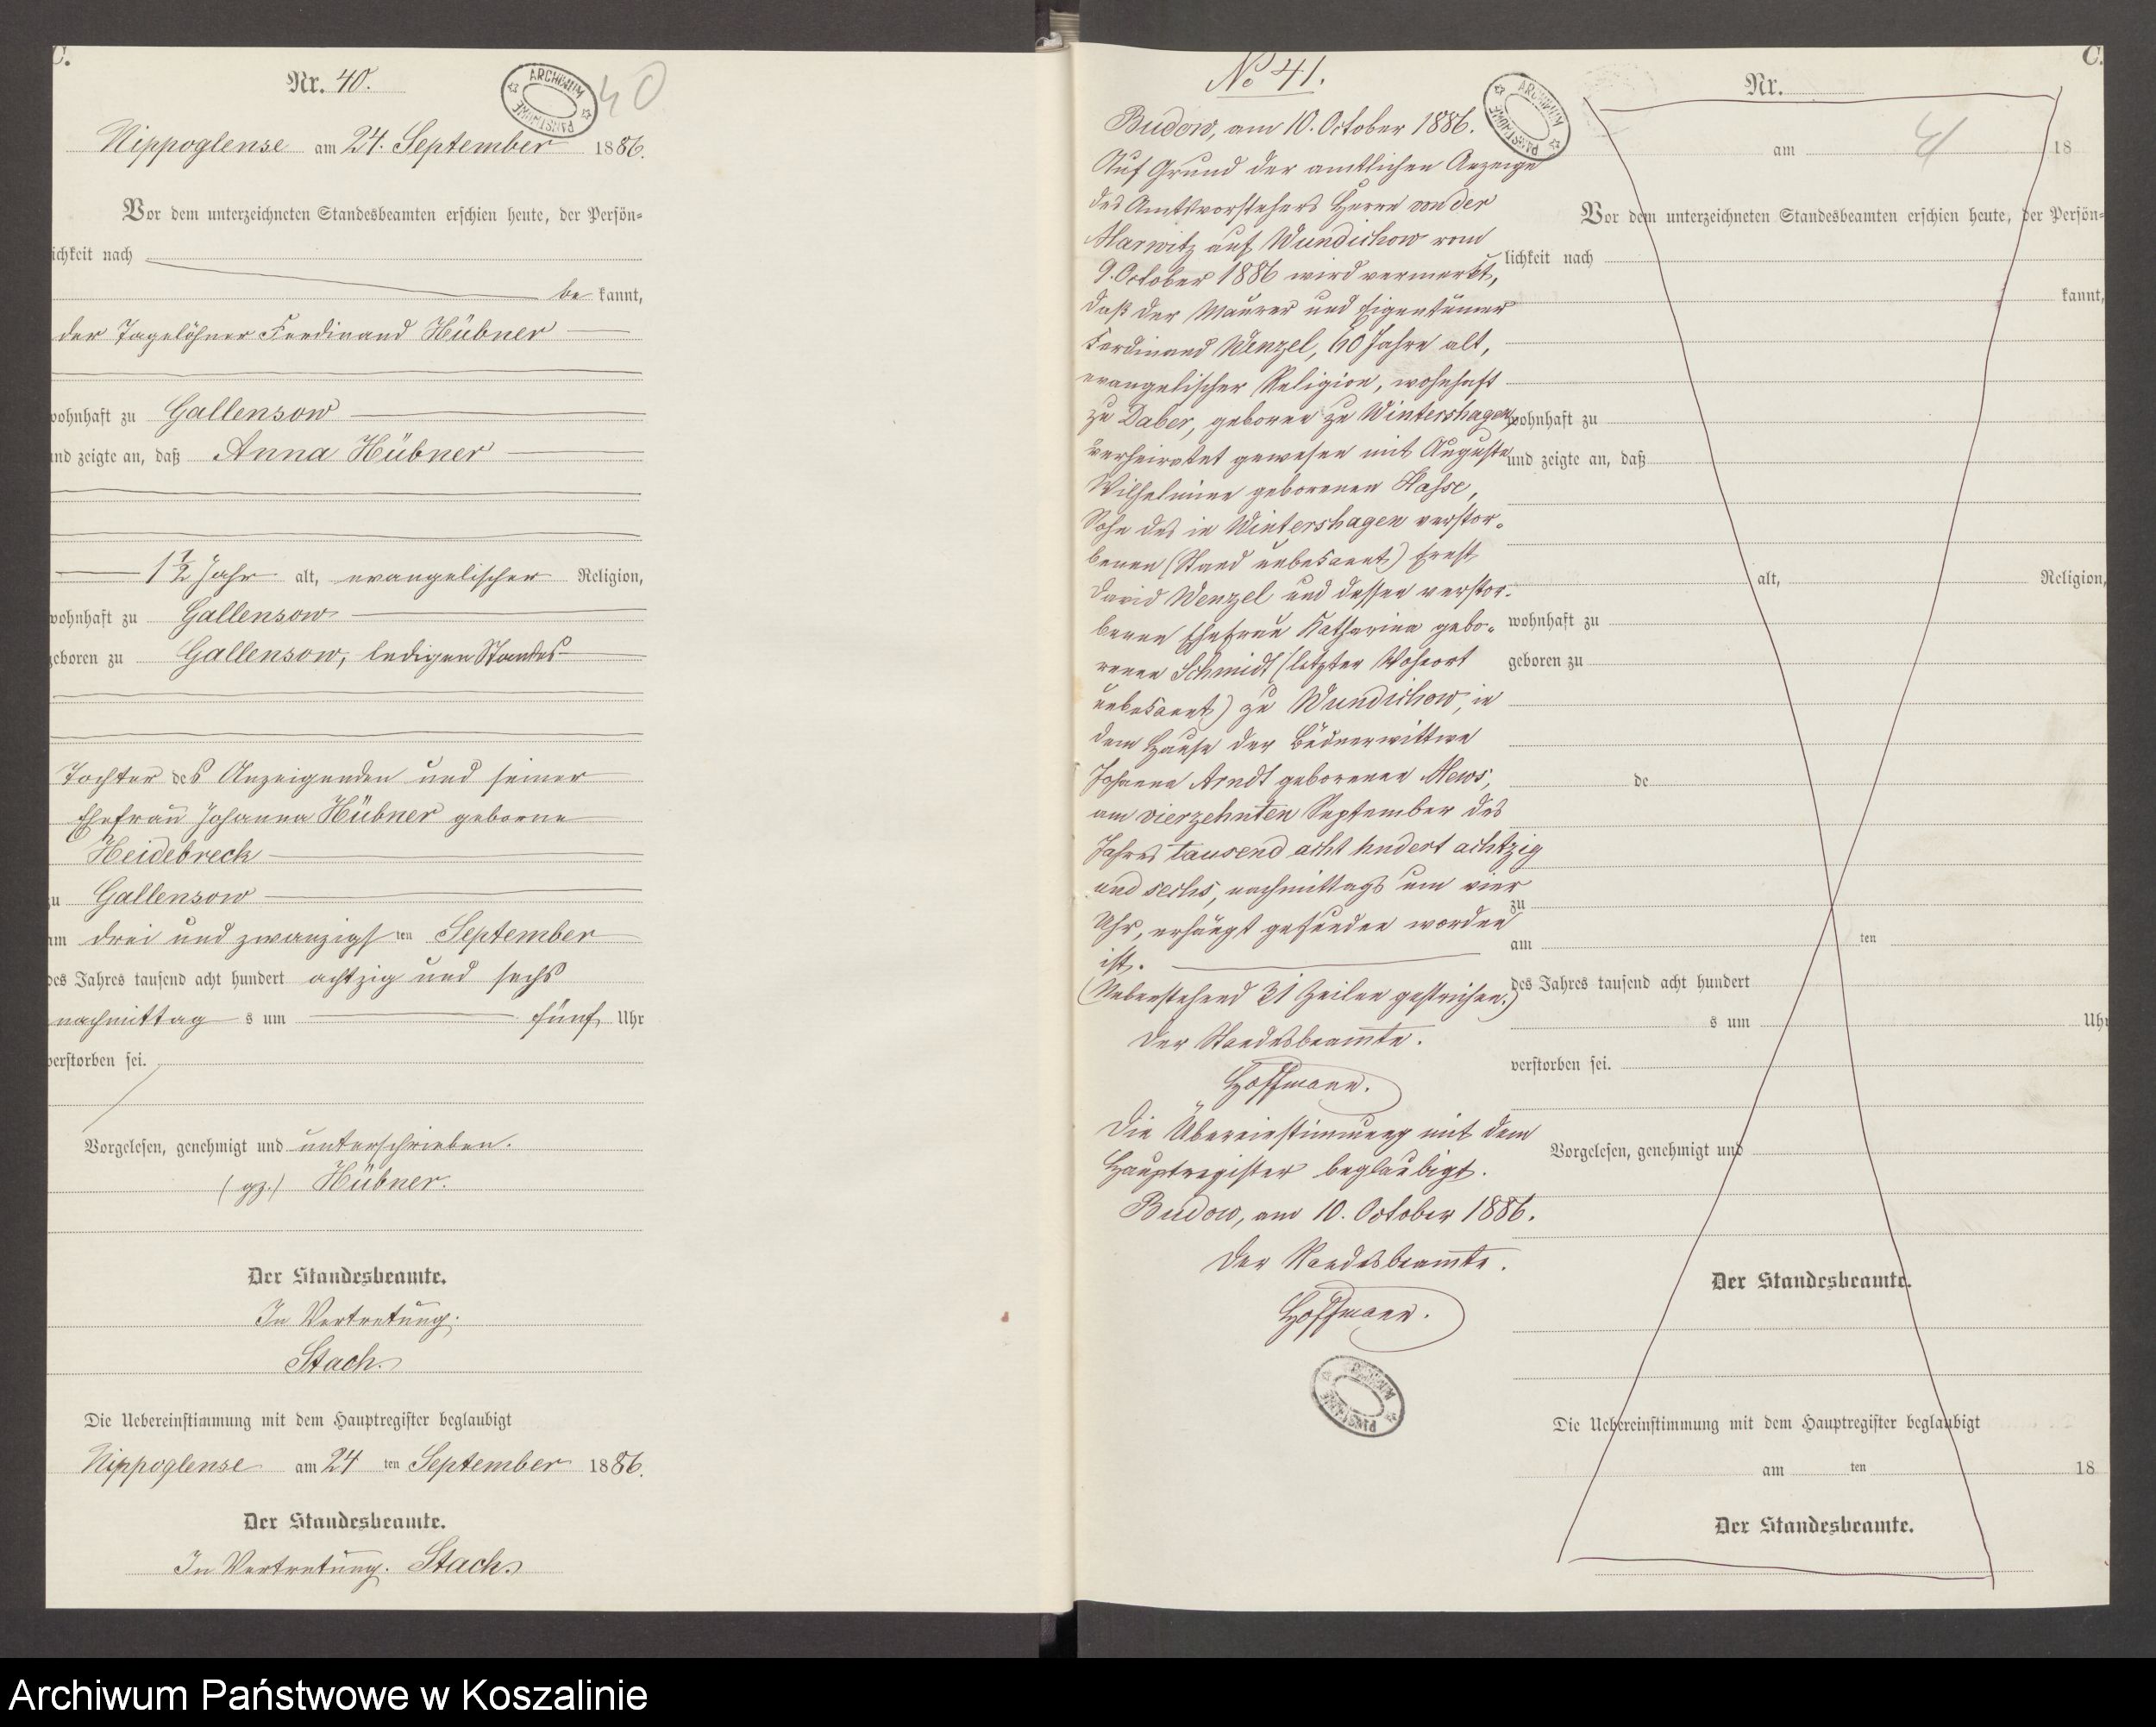 C.
Nr. 40.
ARCHIWUM PAŃSTWOWE
40
Nippoglense am 24. September 1886.
Vor dem unterzeichneten Standesbeamten erschien heute, der Persön=
lichkeit nach
be kannt,
der Tagelöhner Ferdinand Hübner
wohnhaft zu Gallensow
und zeigte an, daß Anna Hübner
1 1/2 Jahr alt, evangelischer Religion,
wohnhaft zu Gallensow
geboren zu Gallensow, ledigen Standes
Tochter des Anzeigenden und seiner
Ehefrau Johanna Hübner geborne
Heidebreck
zu Gallensow
am drei und zwanzigsten September
des Jahres tausend acht hundert achtzig und sechs
nachmittag s um fünf Uhr
verstorben sei.
Vorgelesen, genehmigt und unterschrieben.
(gz.) Hübner.
Der Standesbeamte.
In Vertretung.
Stach.
Die Uebereinstimmung mit dem Hauptregister beglaubigt
Nippoglense am 24 ten September 1886.
Der Standesbeamte.
In Vertretung. Stach.
No 41.
ARCHIWUM PAŃSTWOWE
Budow, am 10. October 1886.
Auf Grund der amtlichen Anzeige
des Amtsvorstehers Herrn von der
Marwitz auf Wundichow vom
9. October 1886 wird vermerkt,
daß der Maurer und Eigentümer
Ferdinand Wenzel, 60 Jahre alt,
evangelischer Religion, wohnhaft
zu Daber, geboren zu Wintershagen,
verheiratet gewesen mit Auguste
Wilhelmine geborenen Hasse,
Sohn des in Wintershagen verstor=
benen (Stand unbekannt) Ernst
David Wenzel und dessen verstor=
benen Ehefrau Katharina gebo=
renen Schmidt (letzter Wohnort
unbekannt) zu Wundichow, in
dem Hause der Büdnerwittwe
Johanna Arndt geborenen Mews,
am vierzehnten September des
Jahres tausend acht hundert achtzig
und sechs, nachmittags um vier
Uhr, erhängt gefunden worden
ist.
(Nebenstehend 31 Zeilen gestrichen.)
Der Standesbeamte.
Hoffmann.
Die Übereinstimmung mit dem
Hauptregister beglaubigt.
Budow, am 10. October 1886.
Der Standesbeamte.
Hoffmann.
ARCHIWUM PAŃSTWOWE
C.
Nr.
41
am 18
Vor dem unterzeichneten Standesbeamten erschien heute, der Persön=
lichkeit nach
kannt,
wohnhaft zu
und zeigte an, daß
alt, Religion,
wohnhaft zu
geboren zu
de
zu
am ten
des Jahres tausend acht hundert
s um Uhr
verstorben sei.
Vorgelesen, genehmigt und
Der Standesbeamte.
Die Uebereinstimmung mit dem Hauptregister beglaubigt
am ten 18
Der Standesbeamte.
Archiwum Państwowe w Koszalinie